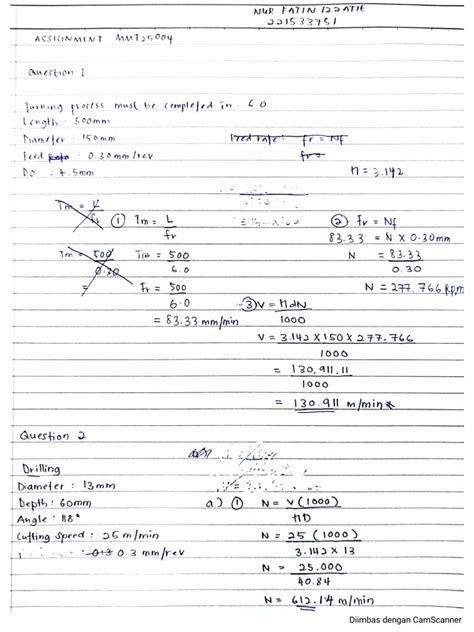 NUR FATIN IZZATIE
221533751
ASSIGNMENT MMT25004
Question 1
Turning process must be completed in : 6.0
Length : 500mm
Diameter : 150mm
Feed rate : fr = Nf
Feed : 0.30 mm/rev
fr =
DO : 4.5mm
π = 3.142
Tm = L
fr
① Tm = L
fr
② fr = Nf
83.33 = N x 0.30mm
Tm = 500
0.30
Tm = 500
6.0
N = 83.33
0.30
= fr = 500
6.0
N = 277.766 Rpm
= 83.33 mm/min
③ V = πdN
1000
V = 3.142 x 150 x 277.766
1000
= 130,911.11
1000
= 130.911 m/min
Question 2
Drilling
Diameter : 13mm
Depth : 60mm
a) ① N = V(1000)
πD
Angle : 118°
Cutting speed : 25 m/min
N = 25 (1000)
3.142 x 13
0.3 0.3 mm/rev
N = 25.000
40.84
N = 612.14 m/min
Diimbas dengan CamScanner